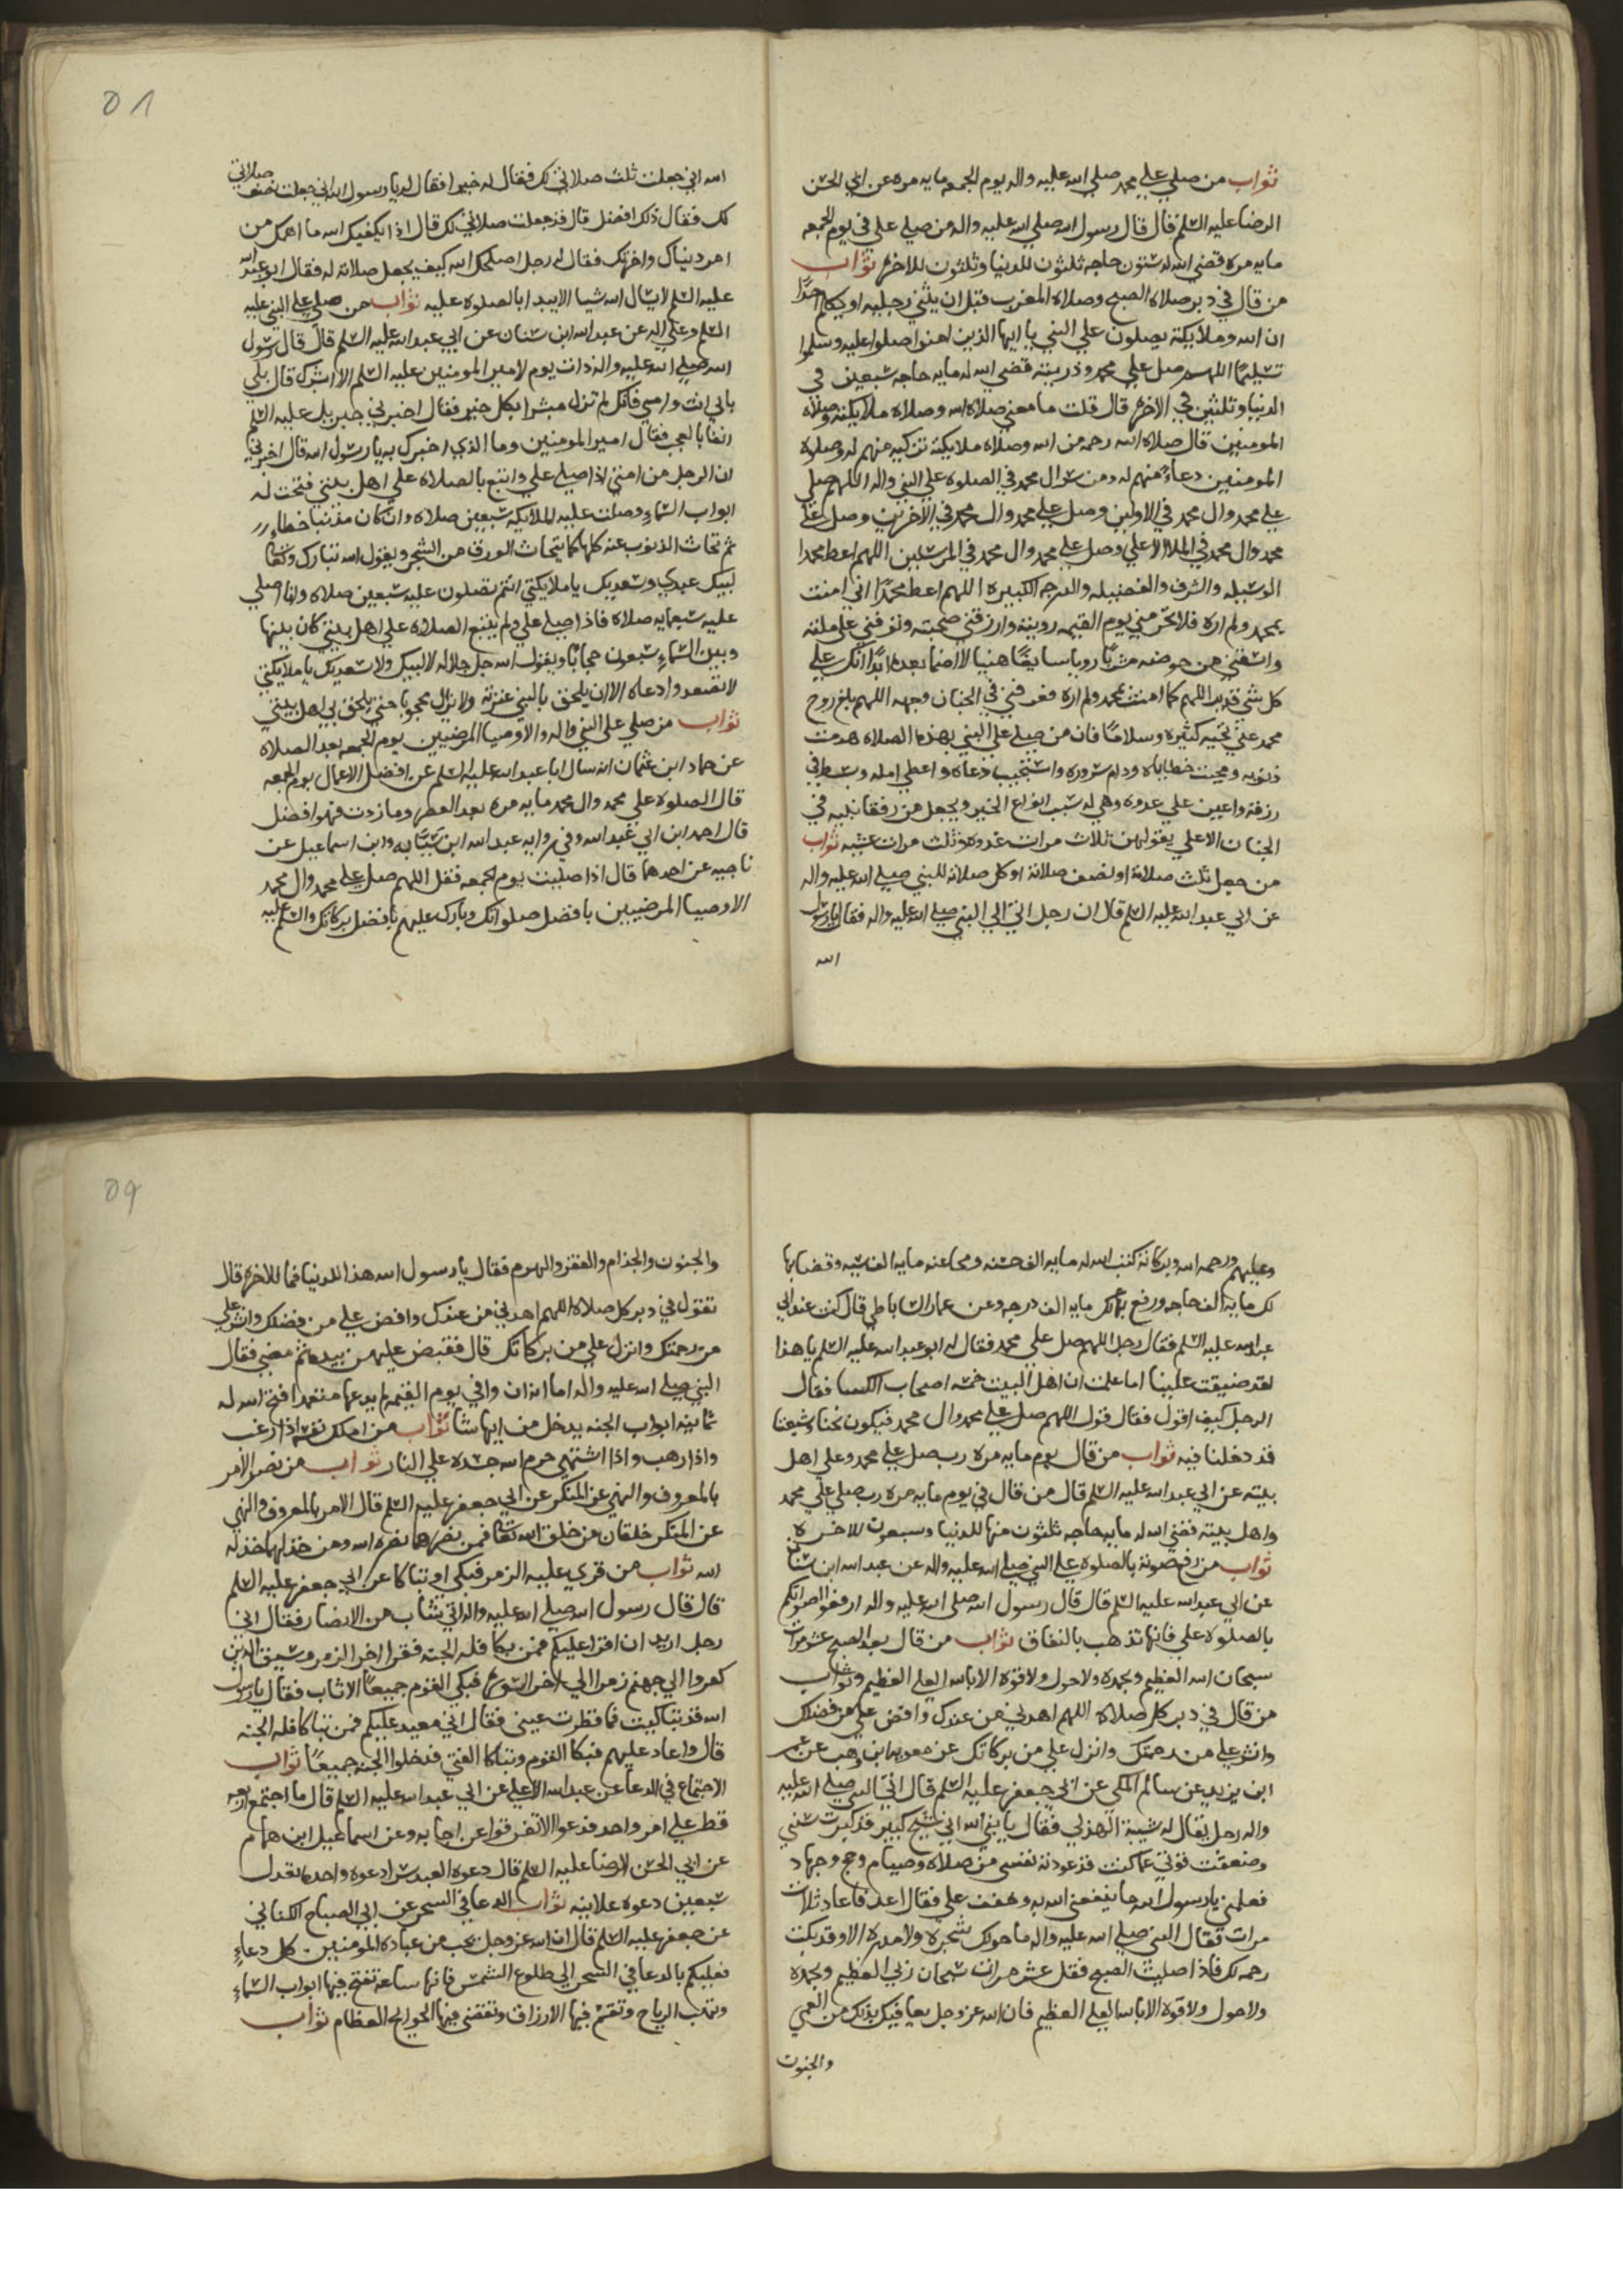 ثواب من صلي علي محمد صلي الله عليه واله يوم الجمعه مايه مره عن ابي الحسن
الرضا عليه السلم قال قال رسول الله صلي الله عليه واله من صلي علي في يوم الجمعه
مايه مره قضي الله له ستون حاجه ثلثون للدنيا وثلثون للاخره ثواب
من قال في دبر صلاه الصبح وصلاه المغرب قبل ان يثني رجليه او يكلم احدًا
ان الله وملايكته يصلون علي النبي يا ايها الذين امنوا صلوا عليه وسلموا
تسليمًا اللهم صل علي محمد وذريته قضي الله له مايه حاجه سبعين في
الدنيا وثلثين في الاخره قال قلت ما معني صلاه الله وصلاه ملايكته وصلاه
المومنين قال صلاه الله رحمه من الله وصلاه ملايكته تزكيه منهم له وصلوه
المومنين دعاء منهم له ومن سر ال محمد في الصلوه علي النبي واله اللهم صل
علي محمد وال محمد في الاولين وصل علي محمد وال محمد في الاخرين وصل علي
محمد وال محمد في الملا الاعلي وصل علي محمد وال محمد في المرسلين اللهم اعط محمدا
الوسيله والشرف والفضيله والدرجه الكبيره اللهم اعط محمدًا اني امنت
بمحمد ولم اره فلا تحرمني يوم القيمه رويته وارزقني صحبته وتوفني علي ملته
واسقني من حوضه مشربًا رويا سايغًا هنيا لا اضما بعده ابدًا انك علي
كل شي قدير اللهم كما امنت بمحمد ولم اره فعرفني في الجنان وجهه اللهم بلغ روح
محمد عني تحيه كثيره وسلامًا فان من صلي علي النبي بهذه الصلاه هدمت
ذنوبه ومحيت خطاياه ودام سروره واستجيب دعاه واعطي امله وبسط في
رزقه واعين علي عدوه وهي له سبب انواع الخير ويجعل من رفقا نبيه في
الجنان الاعلي يقولهن ثلاث مرات غدوه وثلث مرات عشيه ثواب
من جعل ثلث صلاته او نصف صلاته او كل صلاته للنبي صلي الله عليه واله
عن ابي عبد الله عليه السلم قال ان رجل اتي الي النبي صلي الله عليه واله فقال يا رسول
الله
01
الله اني جعلت ثلث صلاتي لك فقال له خيرا فقال له يا رسول الله اني جعلت نصف صلاتي
لك فقال ذلك افضل قال قد جعلت صلاتي لك قال اذا يكفيك الله ما اهمك من
امر دنياك واخرتك فقال له رجل اصلحك الله كيف يجعل صلاته له فقال ابو عبد الله
عليه السلم لا يسال الله شيا الا يبدا بالصلوه عليه ثواب من صلي علي النبي عليه
السلم وعلي اله عن عبد الله ابن سنان عن ابي عبد الله عليه السلم قال قال رسول
الله صلي الله عليه واله ذات يوم لامير المومنين عليه السلم الا ابشرك قال بلي
بابي انت وامي فانك لم تزل مبشرا بكل خير فقال اخبرني جبريل عليه السلم
انفا بالعجب فقال امير المومنين وما الذي اخبرك به يا رسول الله قال اخبرني
ان الرجل من امتي اذا صلي علي واتبع بالصلاه علي اهل بيتي فتحت له
ابواب السماء وصلت عليه الملايكه سبعين صلاه وان كان مذنبا خطاء
ثم تحات الذنوب عنه كلها كما يتحات الورق من الشجر ويقول الله تبارك وتعا
لبيك عبدي وسعديك يا ملايكتي انتم تصلون عليه سبعين صلاه وانا اصلي
عليه سبعمايه صلاه فاذا صلي علي ولم يتبع الصلاه علي اهل بيتي كان بينها
وبين السماء سبعون حجابًا ويقول الله جل جلاله لا لبيك ولا سعديك يا ملايكتي
لا تصعدوا دعاه الا ان يلحق بالنبي عترته ولا يزال محجوبا حتي يلحق بي اهل بيتي
ثواب من صلي علي النبي واله والاوصيا المرضيين يوم الجمعه بعد الصلاه
عن حماد ابن عثمان انه سال ابا عبد الله عليه السلم عن افضل الاعمال يوم الجمعه
قال الصلوه علي محمد وال محمد مايه مره بعد العصر وما زدت فهو افضل
قال احمد ابن ابي عبد الله وفي روايه عبد الله ابن سيابه وابن اسماعيل عن
ناجيه عن احدهما قال اذا صليت يوم الجمعه فقل اللهم صل علي محمد وال محمد
الاوصيا المرضيين بافضل صلواتك وبارك عليهم بافضل بركاتك والسلم عليه
وعليهم ورحمه الله وبركاته كتب الله له مايه الف حسنه ومحا عنه مايه الف سيه وقضا بها
لك مايه الف حاجه ورفع بها لك مايه الف درجه وعن عمار الساباطي قال كنت عند ابي
عبد الله عليه السلم فقال رجل اللهم صل علي محمد فقال له ابو عبد الله عليه السلم يا هذا
لقد ضيقت علينا اما علمت ان اهل البيت خمسه اصحاب الكسا فقال
الرجل كيف اقول فقال قول اللهم صل علي محمد وال محمد فيكون نحنا وشيعتنا
قد دخلنا فيه ثواب من قال يوم مايه مره رب صل علي محمد وعلي اهل
بيته عن ابي عبد الله عليه السلم قال من قال في يوم مايه مره رب صلي علي محمد
واهل بيته قضي الله له مايه حاجه ثلثون منها للدنيا وسبعون للاخره
ثواب من رفع صوته بالصلوه علي النبي صلي الله عليه واله عن عبد الله ابن سنان
عن ابي عبد الله عليه السلم قال قال رسول الله صلي الله عليه واله ارفعوا اصواتكم
بالصلوه علي فانها تذهب بالنفاق ثواب من قال بعد الصبح عشر مرات
سبحان الله العظيم وبحمده ولا حول ولا قوه الا بالله العلي العظيم وثواب
من قال في دبر كل صلاه اللهم اهدني من عندك وافض علي من فضلك
وانشر علي من رحمتك وانزل علي من بركاتك عن معويه ابن وهب عن عمر
ابن يزيد عن سالم المكي عن ابي جعفر عليه السلم قال اتي النبي صلي الله عليه
واله رجل يقال له شيبة الهذلي فقال يا نبي الله اني شيخ كبير قد كبرت سني
وضعفت قوتي عما كنت قد عودته نفسي من صلاه وصيام وحج وجهاد
فعلمني يا رسول الله ما ينفعني الله به وخفف علي فقال اعد فاعاد ثلاث
مرات فقال النبي صلي الله عليه واله ما حولك شجره ولا مدره الا وقد بكت
رحمه لك فاذا صليت الصبح فقل عشر مرات سبحان ربي العظيم وبحمده
ولا حول ولا قوه الا بالله العلي العظيم فان الله عز وجل يعافيك بذلك من العمي
والجنون
09
والجنون والجذام والفقر والهرم فقال يا رسول الله هذا للدنيا فما للاخره قال
تقول في دبر كل صلاه اللهم اهدني من عندك وافض علي من فضلك وانشر علي
من رحمتك وانزل علي من بركاتك قال فقبض عليهن بيده ثم مضي فقال
النبي صلي الله عليه واله اما انه ان وافي يوم القيمه لم يدعها متعمدا فتح الله له
ثمانيه ابواب الجنه يدخل من ايها شا ثواب من املك نفسه اذا رغب
واذا رهب واذا اشتهي حرم الله جسده علي النار ثواب من نصر الامر
بالمعروف والنهي عن المنكر عن ابي جعفر عليه السلم قال الامر بالمعروف والنهي
عن المنكر خلقان من خلق الله تعا فمن نصرهما نصره الله ومن خذلهما خذله
الله ثواب من قري عليه الزمر فبكي او تباكا عن ابي جعفر عليه السلم
قال قال رسول الله صلي الله عليه واله اتي شاب من الانصار فقال اني
رجل اريد ان اقرا عليكم فمن بكا فله الجنه فقرا اخر الزمر وسيق الذين
كفروا الي جهنم زمرا الي اخر السوره فبكي القوم جميعًا الا شاب فقال يا رسول
الله قد تباكيت فما قطرت عيني فقال اني معيد عليكم فمن تباكا فله الجنه
قال واعاد عليهم فبكا القوم وتباكا الفتي فدخلوا الجنه جميعًا ثواب
الاجتماع في الدعا عن عبد الله الاعلي عن ابي عبد الله عليه السلم قال ما اجتمع اربعه
قط علي امر واحد فدعوا الا تفرقوا عن اجابه وعن اسماعيل ابن همام
عن ابي الحسن الرضا عليه السلم قال دعوه العبد سرا دعوه واحده تعدل
سبعين دعوه علانيه ثواب الدعا في السحر عن ابي الصباح الكناني
عن جعفر عليه السلم قال ان الله عز وجل يحب من عباده المومنين كل دعاء
فعليكم بالدعا في السحر الي طلوع الشمس فانها ساعه تفتح فيها ابواب السماء
وتهب الرياح وتقسم فيها الارزاق وتقضي فيها الحوايج العظام ثواب